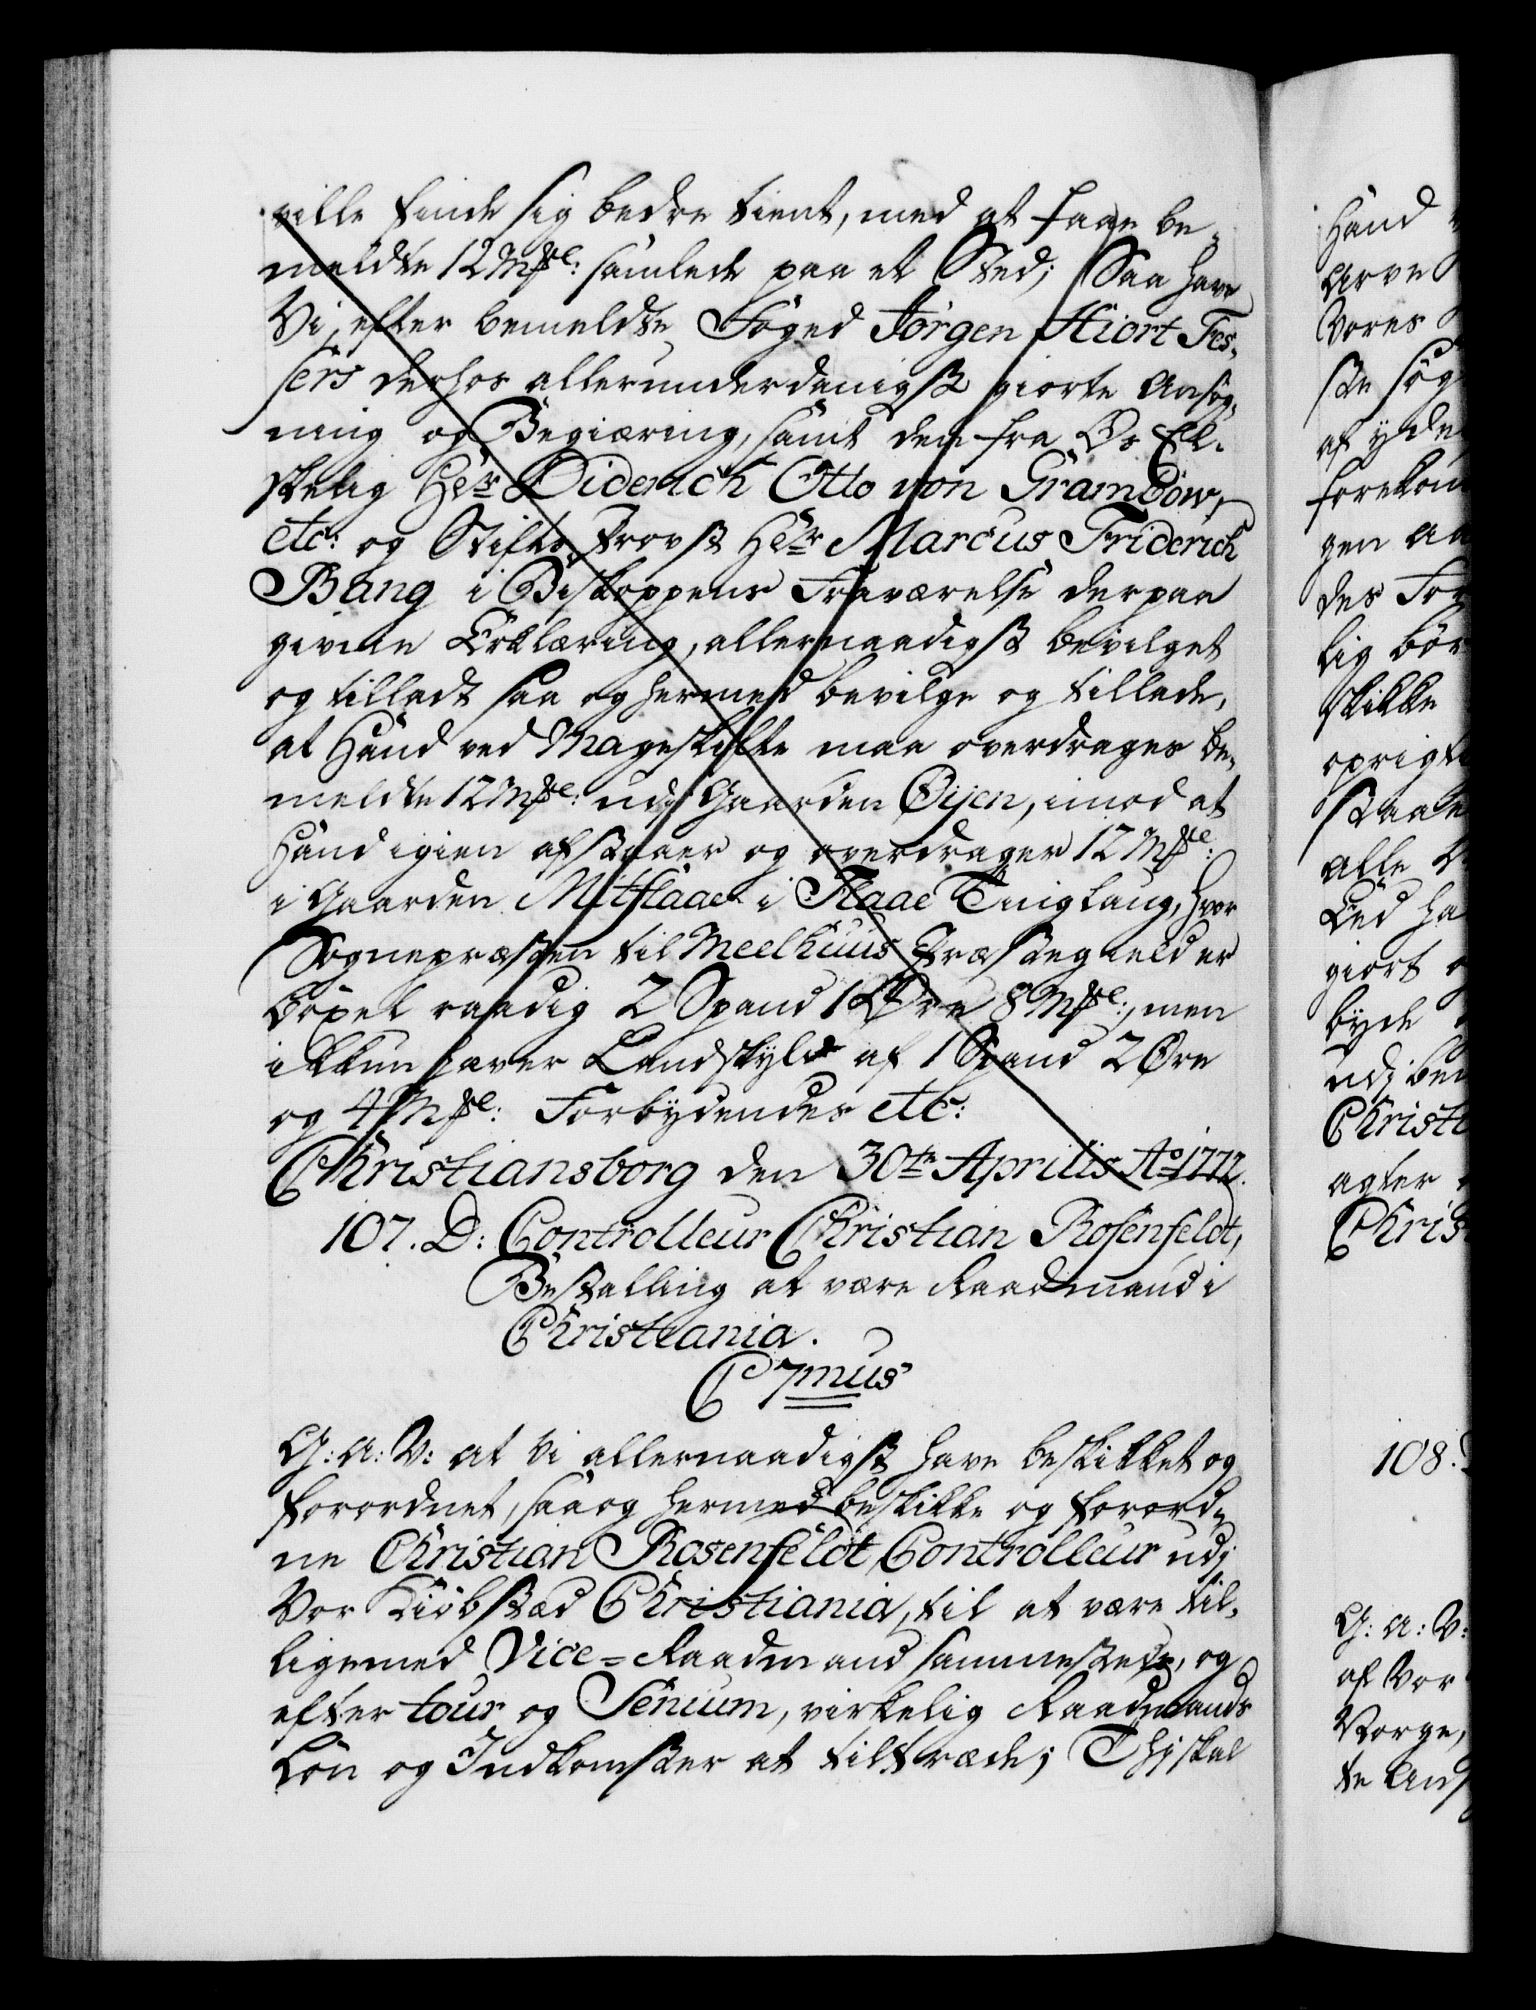 ville finde sig bedre tient, med at faae be„
meldte 12 Mkl: samlede paa et Sted; Saa have
Vi, efter bemeldte Foged Jörgen Hiort Fes„
sers derhos allerunderdanigst giorte Ansøg„
ning og Begiæring, samt den fra Os El„
skelig Herr Diderich Otto von Grambow,
etc: og Stifts Provst Herr Marcus Friderich
Bang i Biskoppens Fraværelse derpaa
givne Erklæring, allernaadigst bevilget
og tilladt saa og hermed bevilge og tillade,
at Hand ved Mageskifte maa overdrages be„
meldte 12 Mkl: udj Gaarden Øyen, imod at
Hand igien afstaaer og overdrager 12 Mkl:
i Gaarden Mitflaae i Flaae Tinglaug, hvor
Sognepræsten til Meelhuus Præstegield er
Böxel raadig 2 Spand 1 Øre 8 Mkl:, men
ikkun haver Landskyld af 1 Spand 2 Øre
og 4 Mkl: Forbydendes etc:
Christiansborg den 30te Aprilis Ao 1772.
107. D: Controlleur Christian Rosenfeldt,
Bestalling at være Raadmand i
Christiania.
C 7mus
G: A: V: at Vi allernaadigst have beskikket og
forordnet, saa og hermed beskikke og forord„
ne Christian Rosenfeldt, Controlleur udj
Vor Kiöbstæd Christiania, til at være til„
ligemed Vice=Raadmand sammestedz, og
efter tour og Senium, virkelig Raadmands
Lön og Indkomster at tiltræde; Thj skal
Hand
Arve
Vores
ste søg
af yde
forekom
gen aa
des For
lig bör
skikke
oprigt
staae
alle V
Eed ha
giort o
byde
udj bem
Christi
agter
Chris
108. D
G: A: V:
af Vor
Norge,
te Ans